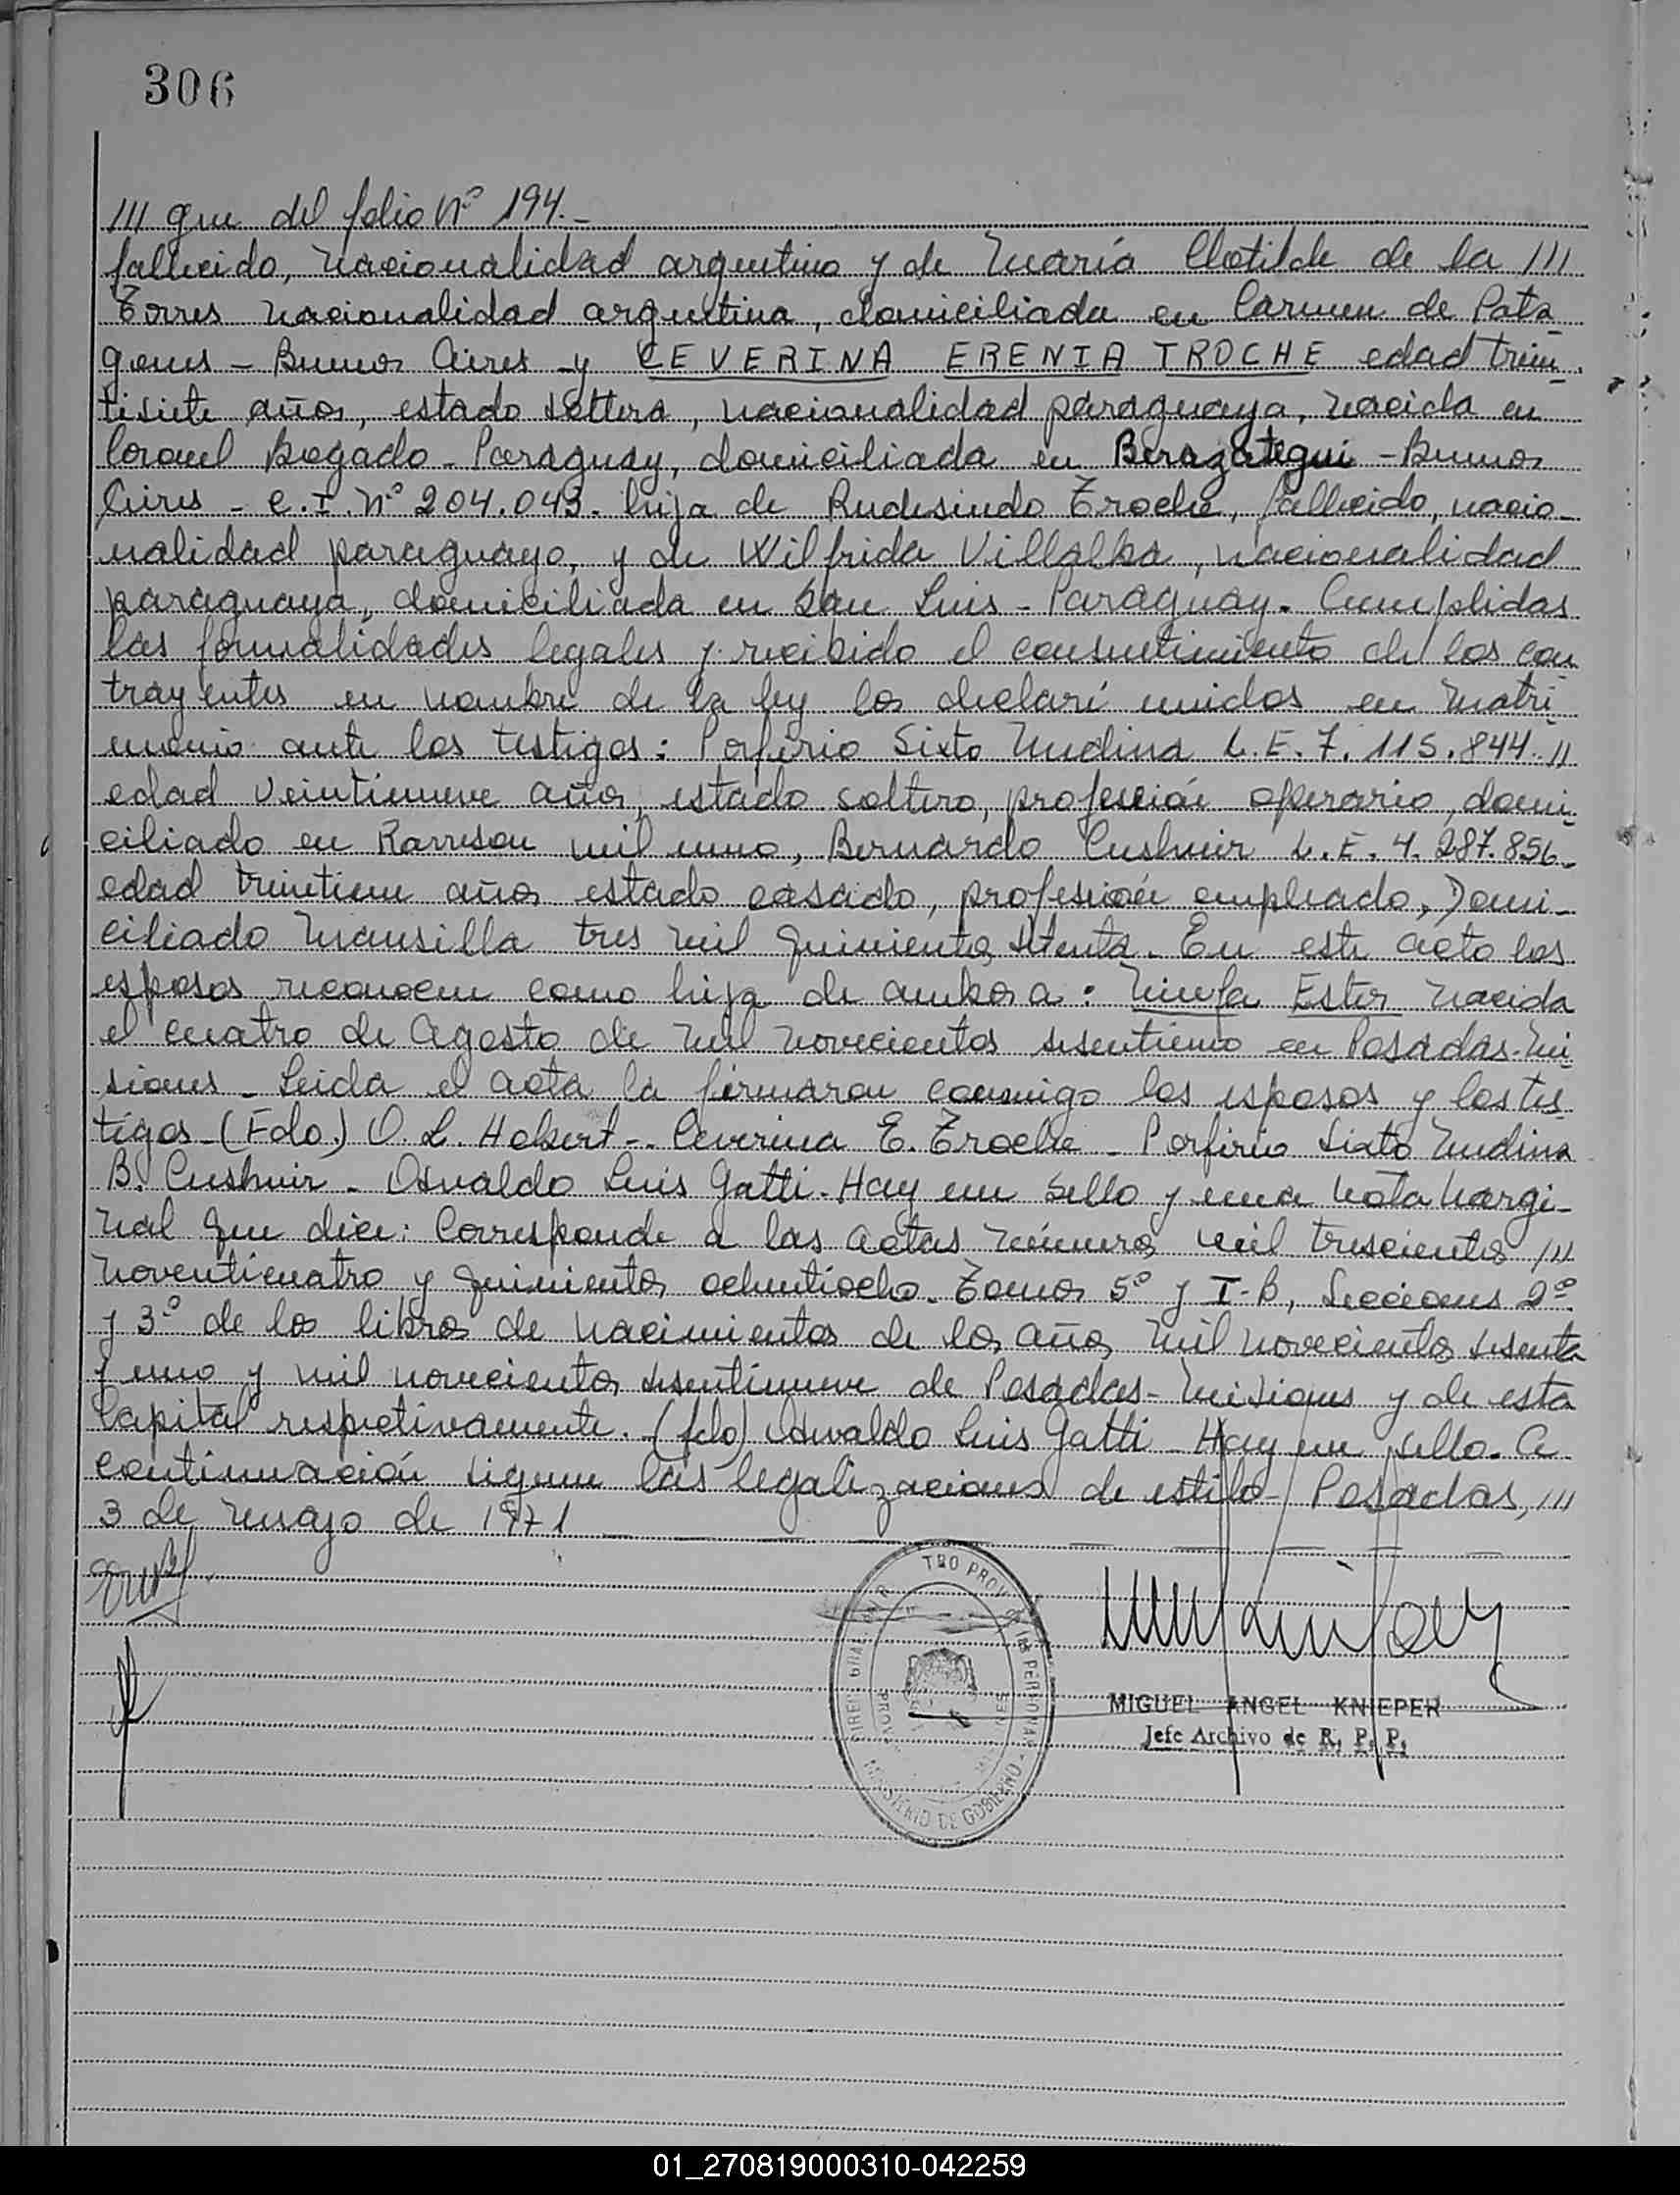 306
/// gue del folio Nº 194.-
fallecido, nacionalidad argentino y de María Clotilde de la ///
Torres nacionalidad argentina, domiciliada en Carmen de Pata_
gones - Buenos Aires - y CEVERINA ERENIA TROCHE edad trein_
tisiete años, estado soltera, nacionalidad paraguaya, nacida en
Coronel Bogado - Paraguay, domiciliada en Berazategui - Buenos
Aires - C.I. Nº 204.043. hija de Rudesindo Troche, fallecido, nacio_
nalidad paraguayo, y de Wilfrida Villalba, nacionalidad
paraguaya, domiciliada en San Luis - Paraguay. Cumplidas
las formalidades legales y recibido el consentimiento de los con_
trayentes en nombre de la ley los declaré unidos en matri_
monio ante los testigos: Porfirio Sixto Medina L.E. 7.115.844 //
edad veintinueve años, estado soltero, profesión operario, domi_
ciliado en Rawson mil uno, Bernardo Cushnir L.E. 4.287.856_
edad treintiun años estado casado, profesión empleado, Domi_
ciliado Mansilla tres mil quinientos setenta. En este acto los
esposos reconocen como hija de ambos a: Ninfa Ester nacida
el cuatro de Agosto de mil novecientos sesentiuno en Posadas-Mi_
siones - Leida el acta la firmaron conmigo los esposos y los tes_
tigos - (Fdo.) O. L. Hobert -- Ceverina E. Troche - Porfirio Sixto Medina
B. Cushnir - Osvaldo Luis Gatti - Hay un sello y una nota margi_
nal que dice: Corresponde a las actas números mil trescientos ///
noventicuatro y quinientos ochentiocho. Tomos 5º y I-B, Secciones 2º
y 3º de los libros de nacimientos de los años mil novecientos sesenta
y uno y mil novecientos sesentinueve de Posadas - Misiones y de esta
Capital respectivamente. (fdo) Osvaldo Luis Gatti - Hay un sello. A
continuación siguen las legalizaciones de estilo - Posadas, ///
3 de mayo de 1971
MIGUEL ANGEL KNIEPER
Jefe Archivo de R. P. P.
MINISTERIO DE GOBIERNO
01_270819000310-042259